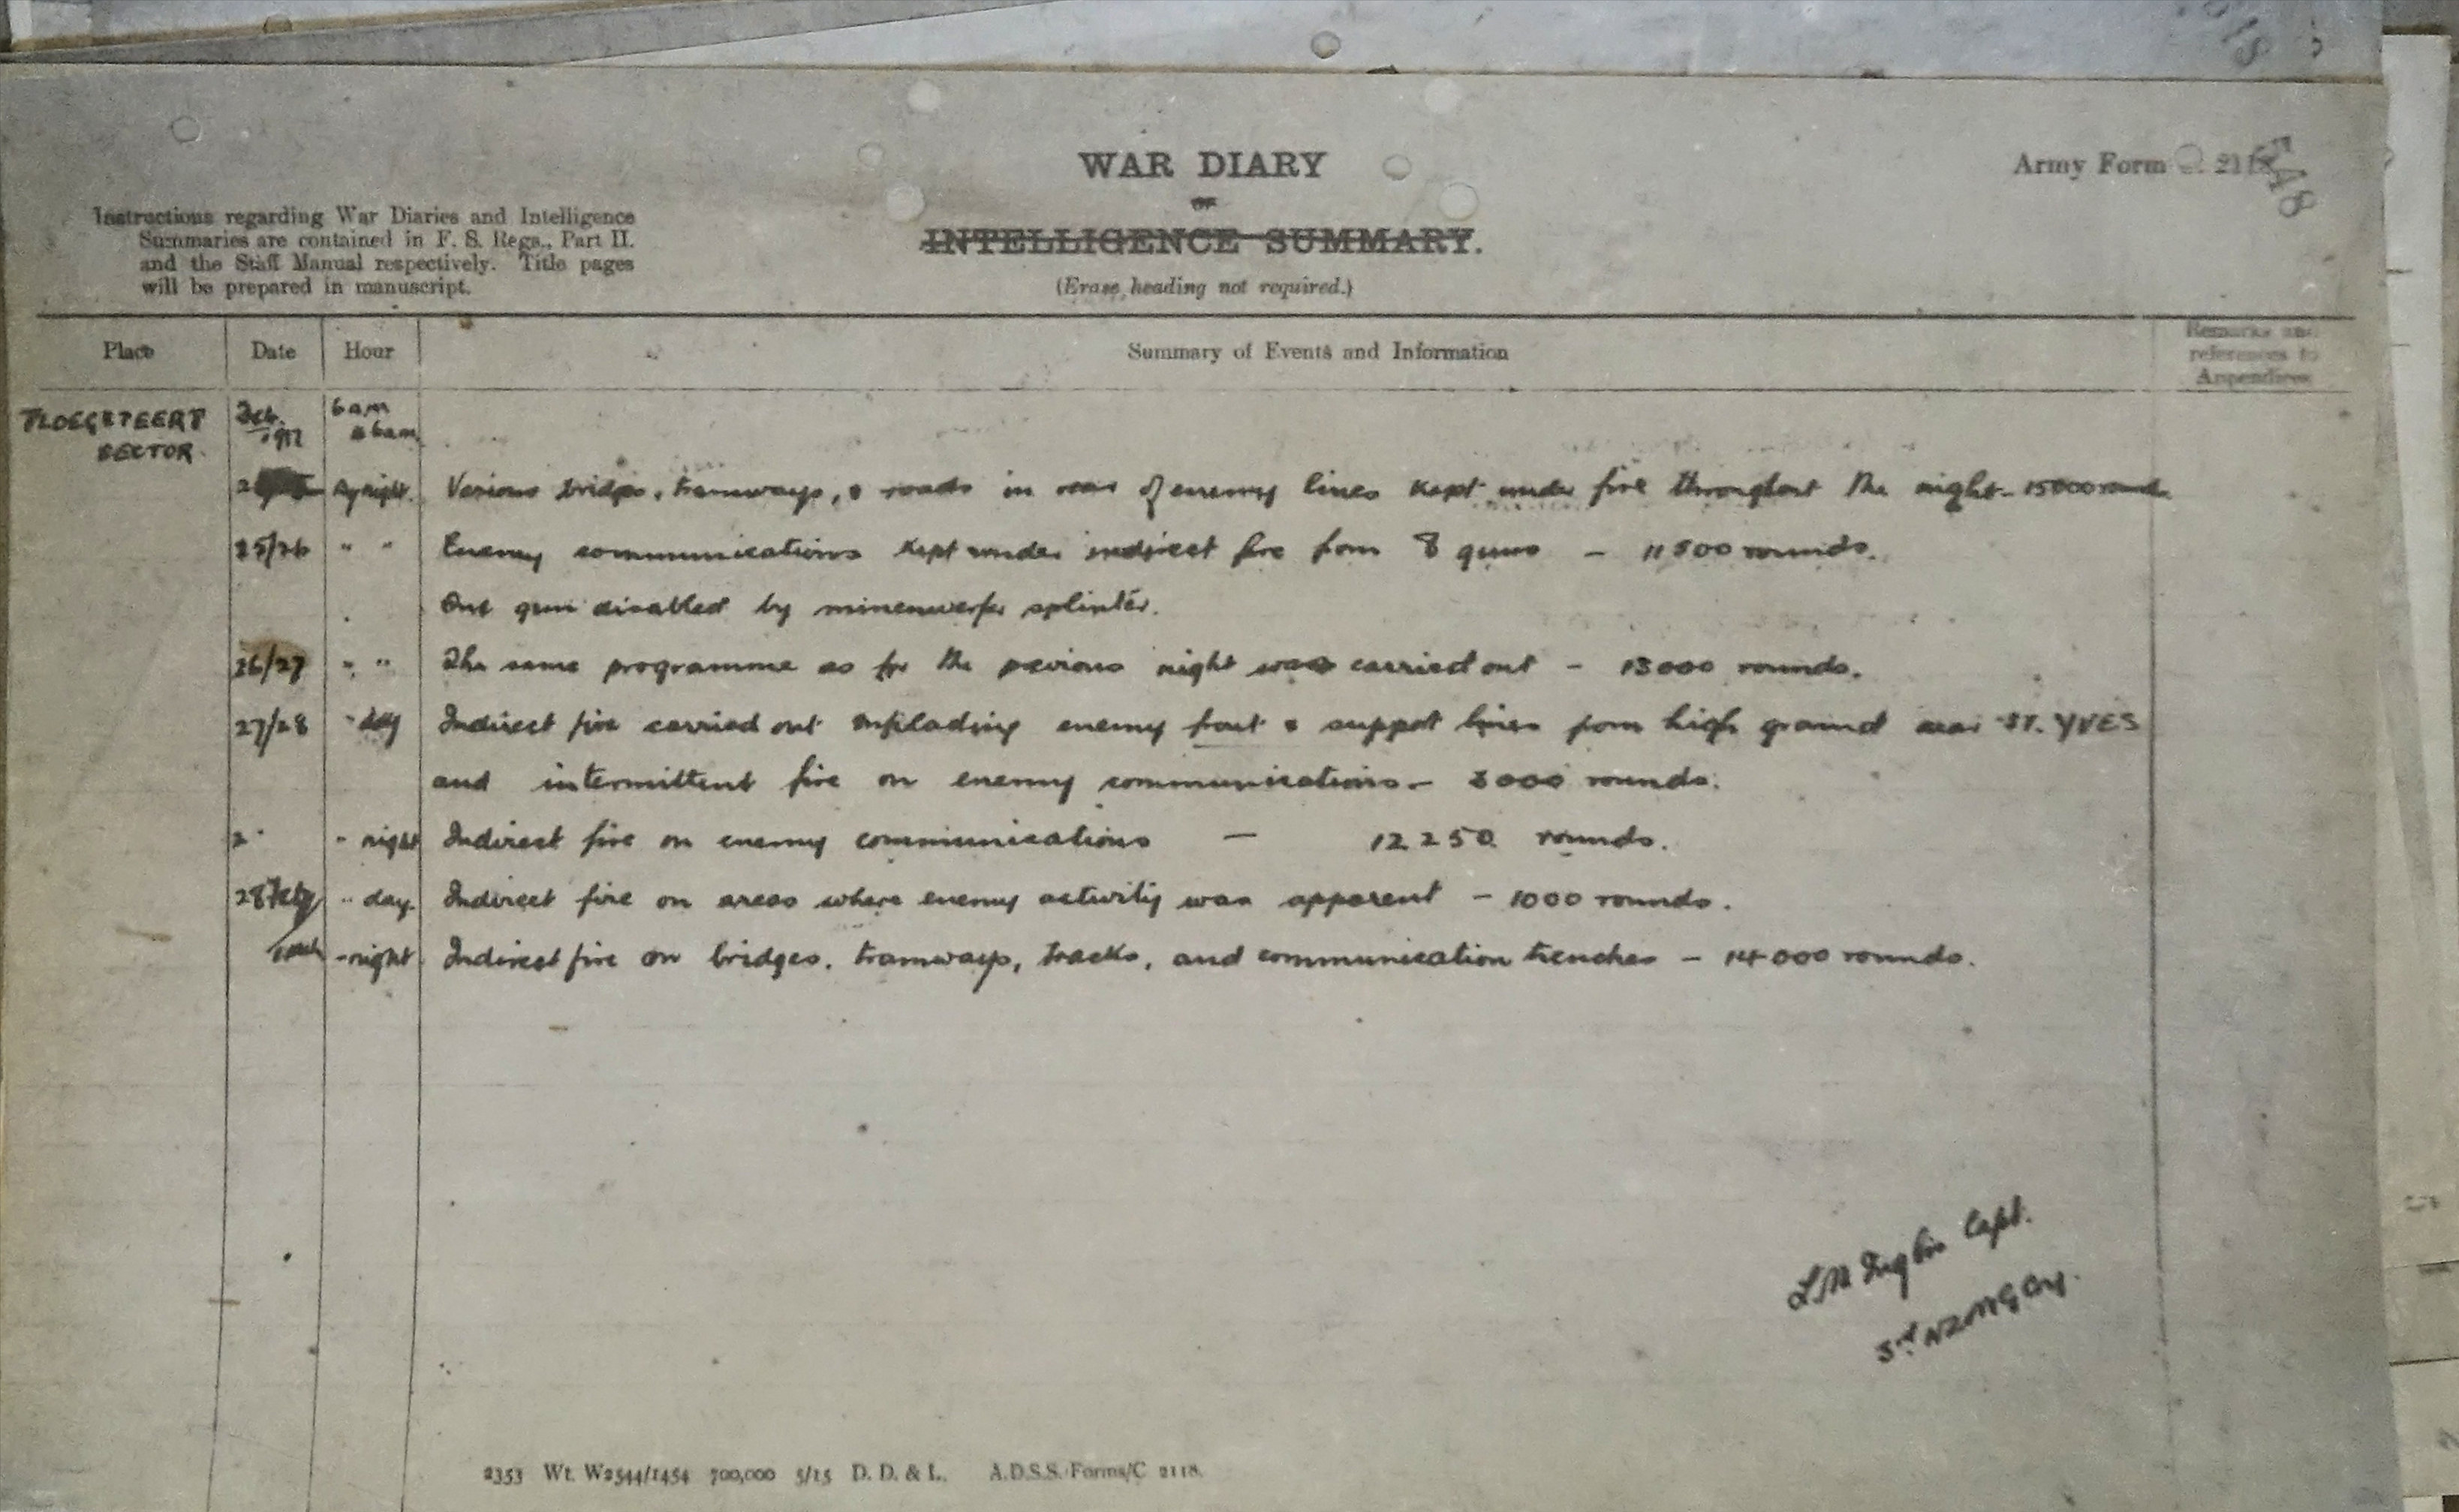 WAR DIARY
or
INTELLIGENCE SUMMARY.
(Erase heading not required.)
Army Form 2118
Instructions regarding War Diaries and Intelligence
Summaries are contained in F. S. Regs., Part II.
and the Staff Manual respectively. Title pages
will be prepared in manuscript.
Place Date Hour Summary of Events and Information Remarks and
references to
Appendices
PLOEGSTEERT Feb. 6am
SECTOR. 1917 6am
By night. Various bridges, tramways, & roads in rear of enemy lines kept under fire throughout the night - 15000 rounds
25/26 " " Enemy communications kept under indirect fire from 8 guns - 11500 rounds.
One gun disabled by minenwerfer splinter.
26/27 " " The same programme as for the previous night was carried out - 13000 rounds.
27/28 " day Indirect fire carried out enfilading enemy front & support lines from high ground near ST. YVES
and intermittent fire on enemy communications - 3000 rounds.
" night Indirect fire on enemy communications - 12250 rounds.
28 Feby " day. Indirect fire on areas where enemy activity was apparent - 1000 rounds.
" night Indirect fire on bridges, tramways, tracks, and communication trenches - 14000 rounds.
L M Inglis Capt.
3rd NZ MG Coy.
2353 Wt. W2544/1454 700,000 5/15 D. D. & L. A.D.S.S./Forms/C 2118.